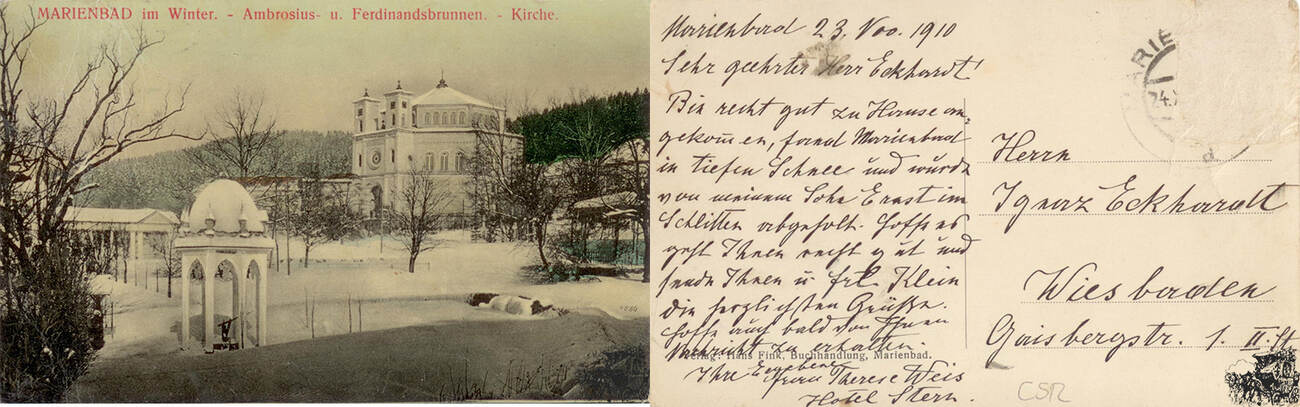 MARIENBAD im Winter. - Ambrosius- u. Ferdinandsbrunnen. - Kirche.
Marienbad 23. Nov. 1910
Sehr geehrter Herr Eckhardt!
Bin recht gut zu Hause an-
gekom̄en, fand Marienbad
in tiefen Schnee und wurde
von meinem Sohn Ernst im
Schlitten abgeholt. Hoffe es
geht Ihnen recht gut und
sende Ihnen u frl. Klein
die herzlichsten Grüße.
Hoffe auch bald von Ihnen
Nachricht zu erhalten.
Ihre Ergebene
frau Therese Weis
Hotel Stern.
Verlag: Hans Fink, Buchhandlung, Marienbad.
MARIE
24.
d
Herrn
Ignaz Eckhardt
Wiesbaden
Gaisbergstr. 1. II. St
CSR